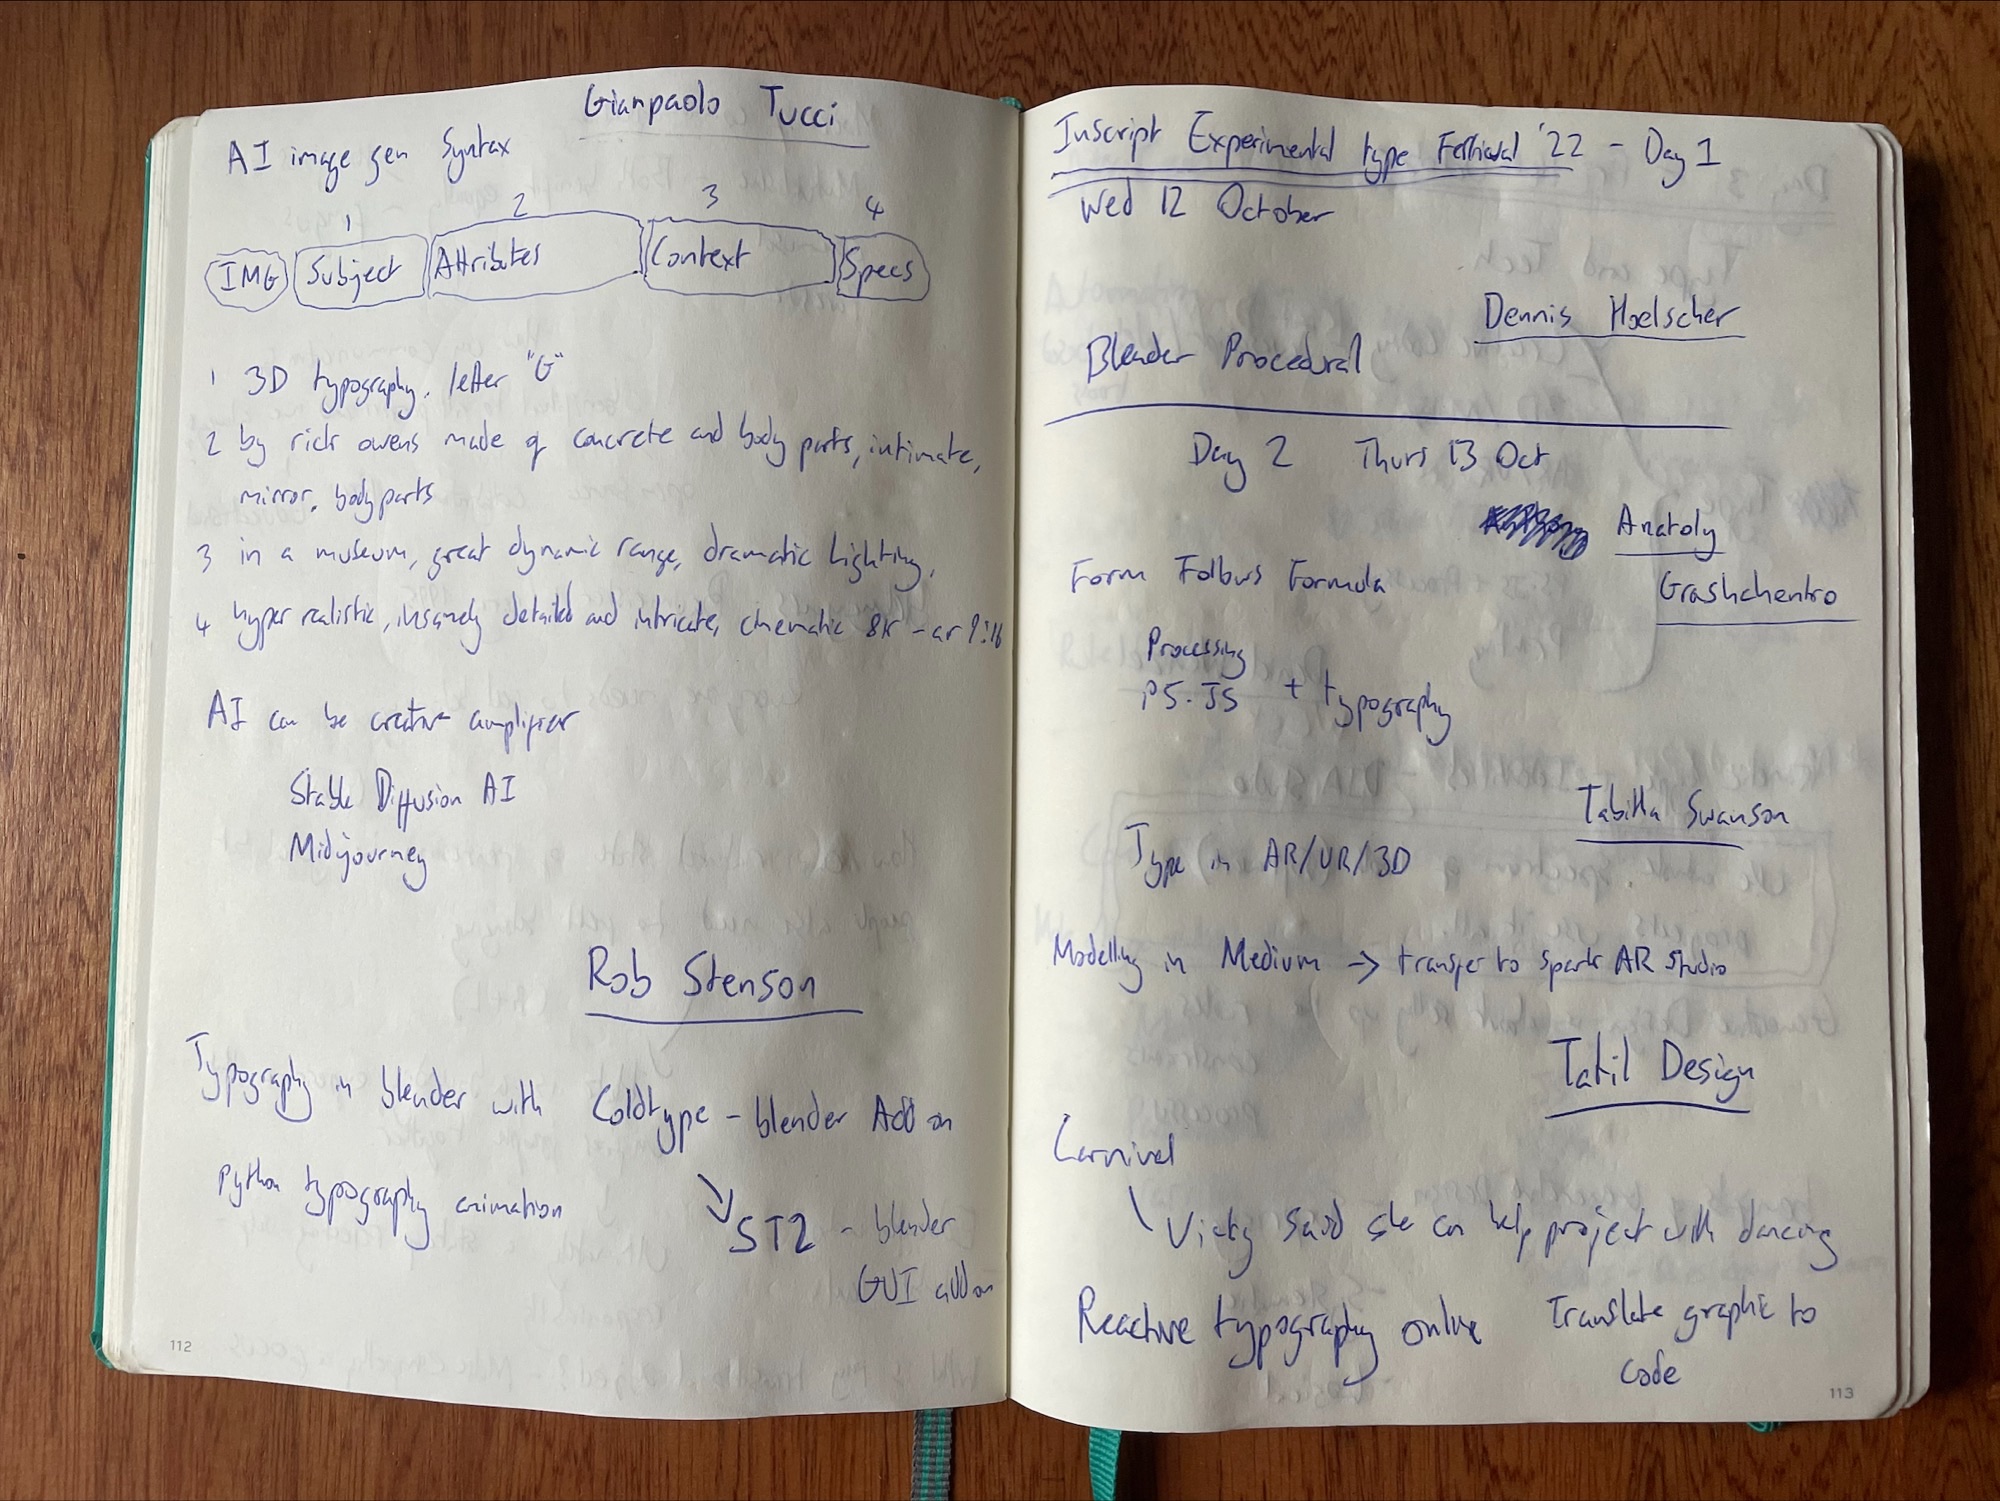 Gianpaolo Tucci
AI image gen Syntax
1 2 3 4
IMG Subject Attributes Context Specs
1 3D typography. letter "G"
2 by rick owens made of concrete and body parts, intimate,
mirror, body parts
3 in a museum, great dynamic range, dramatic lighting,
4 hyper realistic, insanely detailed and intricate, cinematic 8k - ar 9:16
AI can be creative amplifier
Stable Diffusion AI
Midjourney
Rob Stenson
Typography in blender with Coldtype - blender Add on
Python typography animation
ST2 - blender
GUI add on
112
Inscript Experimental type Festival '22 - Day 1
Wed 12 October
Dennis Hoelscher
Blender Procedural
Day 2 Thurs 13 Oct
Anatoly
Grashchenko
Form Follows Formula
Processing
P5.JS + typography
Tabitha Swanson
Type in AR/VR/3D
Modelling in Medium → transfer to spark AR studio
Tatil Design
Carnival
Vicky said she can help project with dancing
Reactive typography online
Translate graphic to
code
113